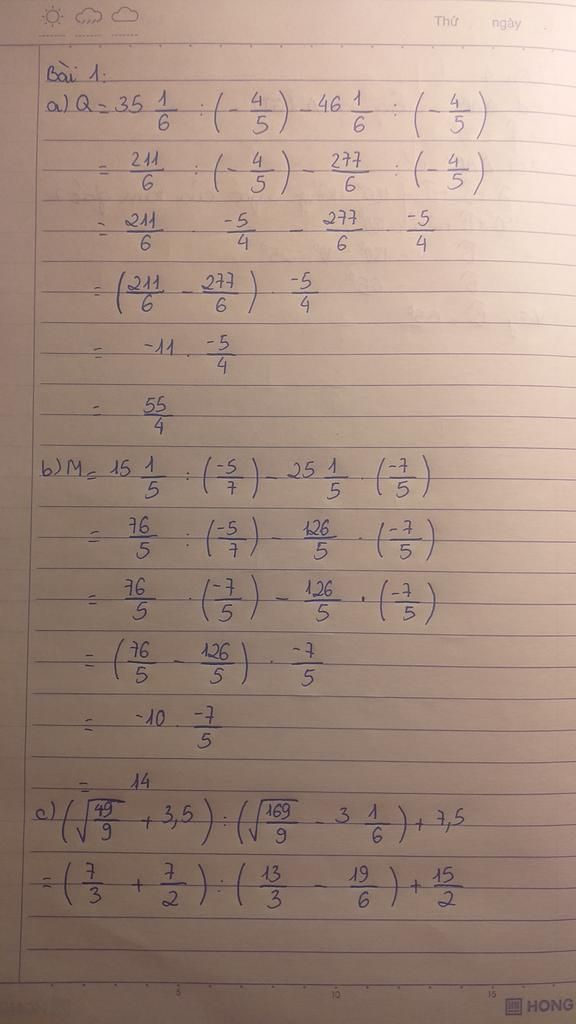 Thứ ngày
Bài 1:
a) Q = 35 1/6 : (- 4/5) - 46 1/6 : (- 4/5)
= 211/6 : (- 4/5) - 277/6 : (- 4/5)
= 211/6 . -5/4 - 277/6 . -5/4
= (211/6 - 277/6) . -5/4
= -11 . -5/4
= 55/4
b) M = 15 1/5 : (-5/7) - 25 1/5 . (-7/5)
= 76/5 : (-5/7) - 126/5 . (-7/5)
= 76/5 . (-7/5) - 126/5 . (-7/5)
= (76/5 - 126/5) . -7/5
= -10 . -7/5
= 14
c) (√49/9 + 3,5) : (√169/9 - 3 1/6) + 7,5
= (7/3 + 7/2) : (13/3 - 19/6) + 15/2
5 10 15
HONG